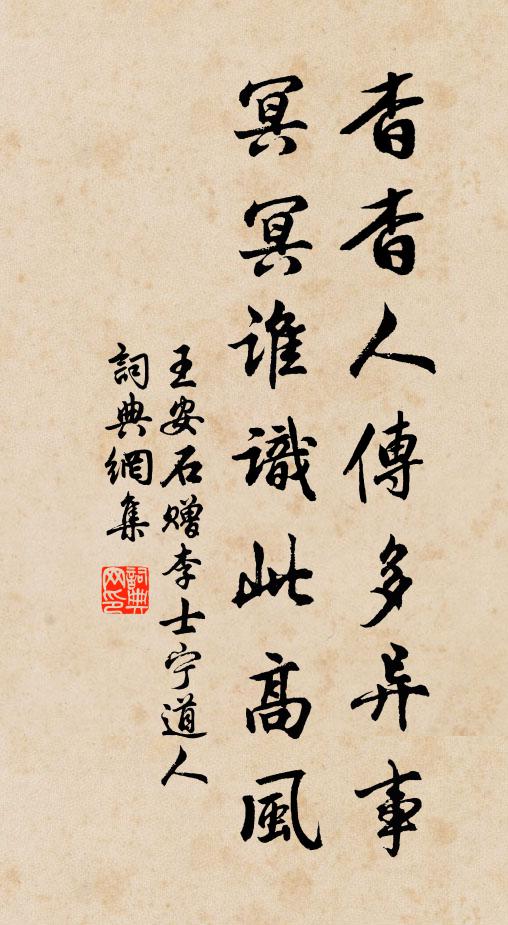 杳杳人傳多异事
冥冥誰識此高風
王安石赠李士宁道人
詞典網集
詞典网印